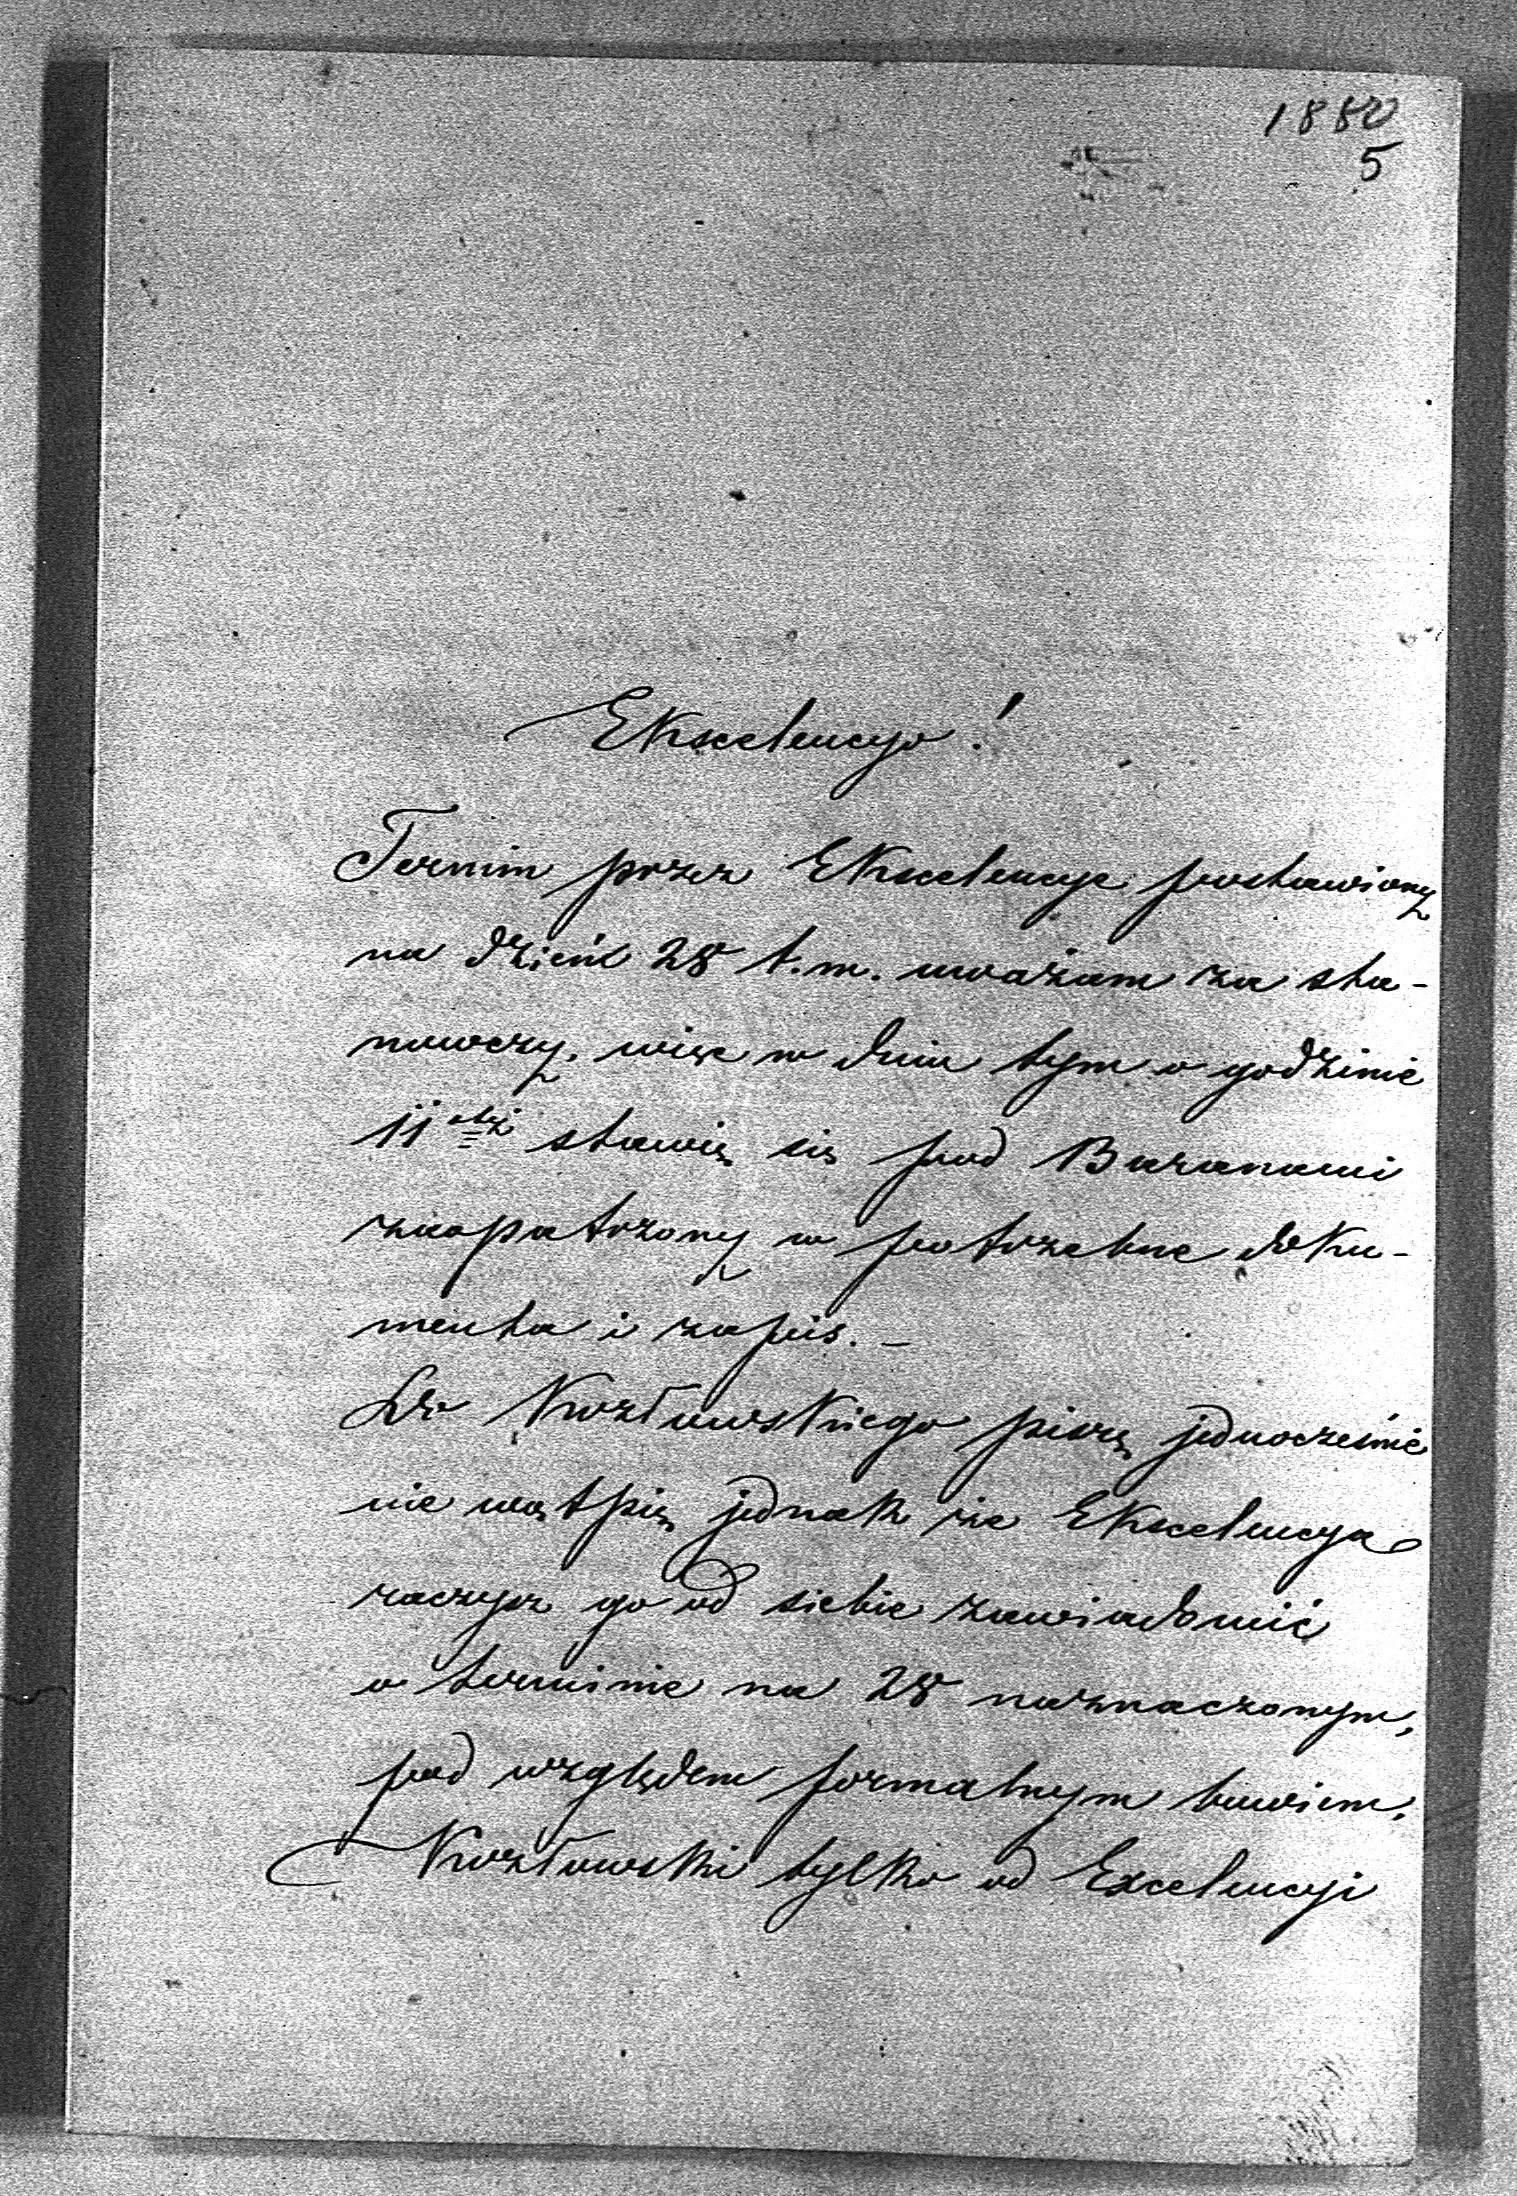 1880
5
Ekscelencyo!
Termin przez Ekscelencye postawiony
na dzień 28 t.m. uważam za sta-
nowczy, więc w dniu tym o godzinie
11stej stawię się pod Baranami
zaopatrzony w potrzebne doku-
menta i zapis. —
Do Kozłowskiego piszę jednocześnie
nie wątpię jednak że Ekscelencya
raczysz go od siebie zawiadomić
o terminie na 28 naznaczonym,
pod względem formalnym bowiem,
Kozłowski tylko od Excelencyi